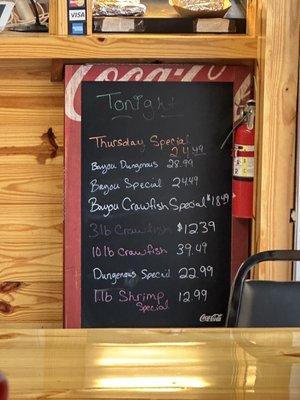 VISA
Coca-Cola
Tonight
Thursday Special
24.49
Bayou Dungenous 28.99
Bayou Special 24.49
Bayou Crawfish Special $18.49
3lb Crawfish $12.39
10lb Crawfish 39.49
Dungenous Special 22.99
1lb Shrimp 12.99
Special
Coca-Cola